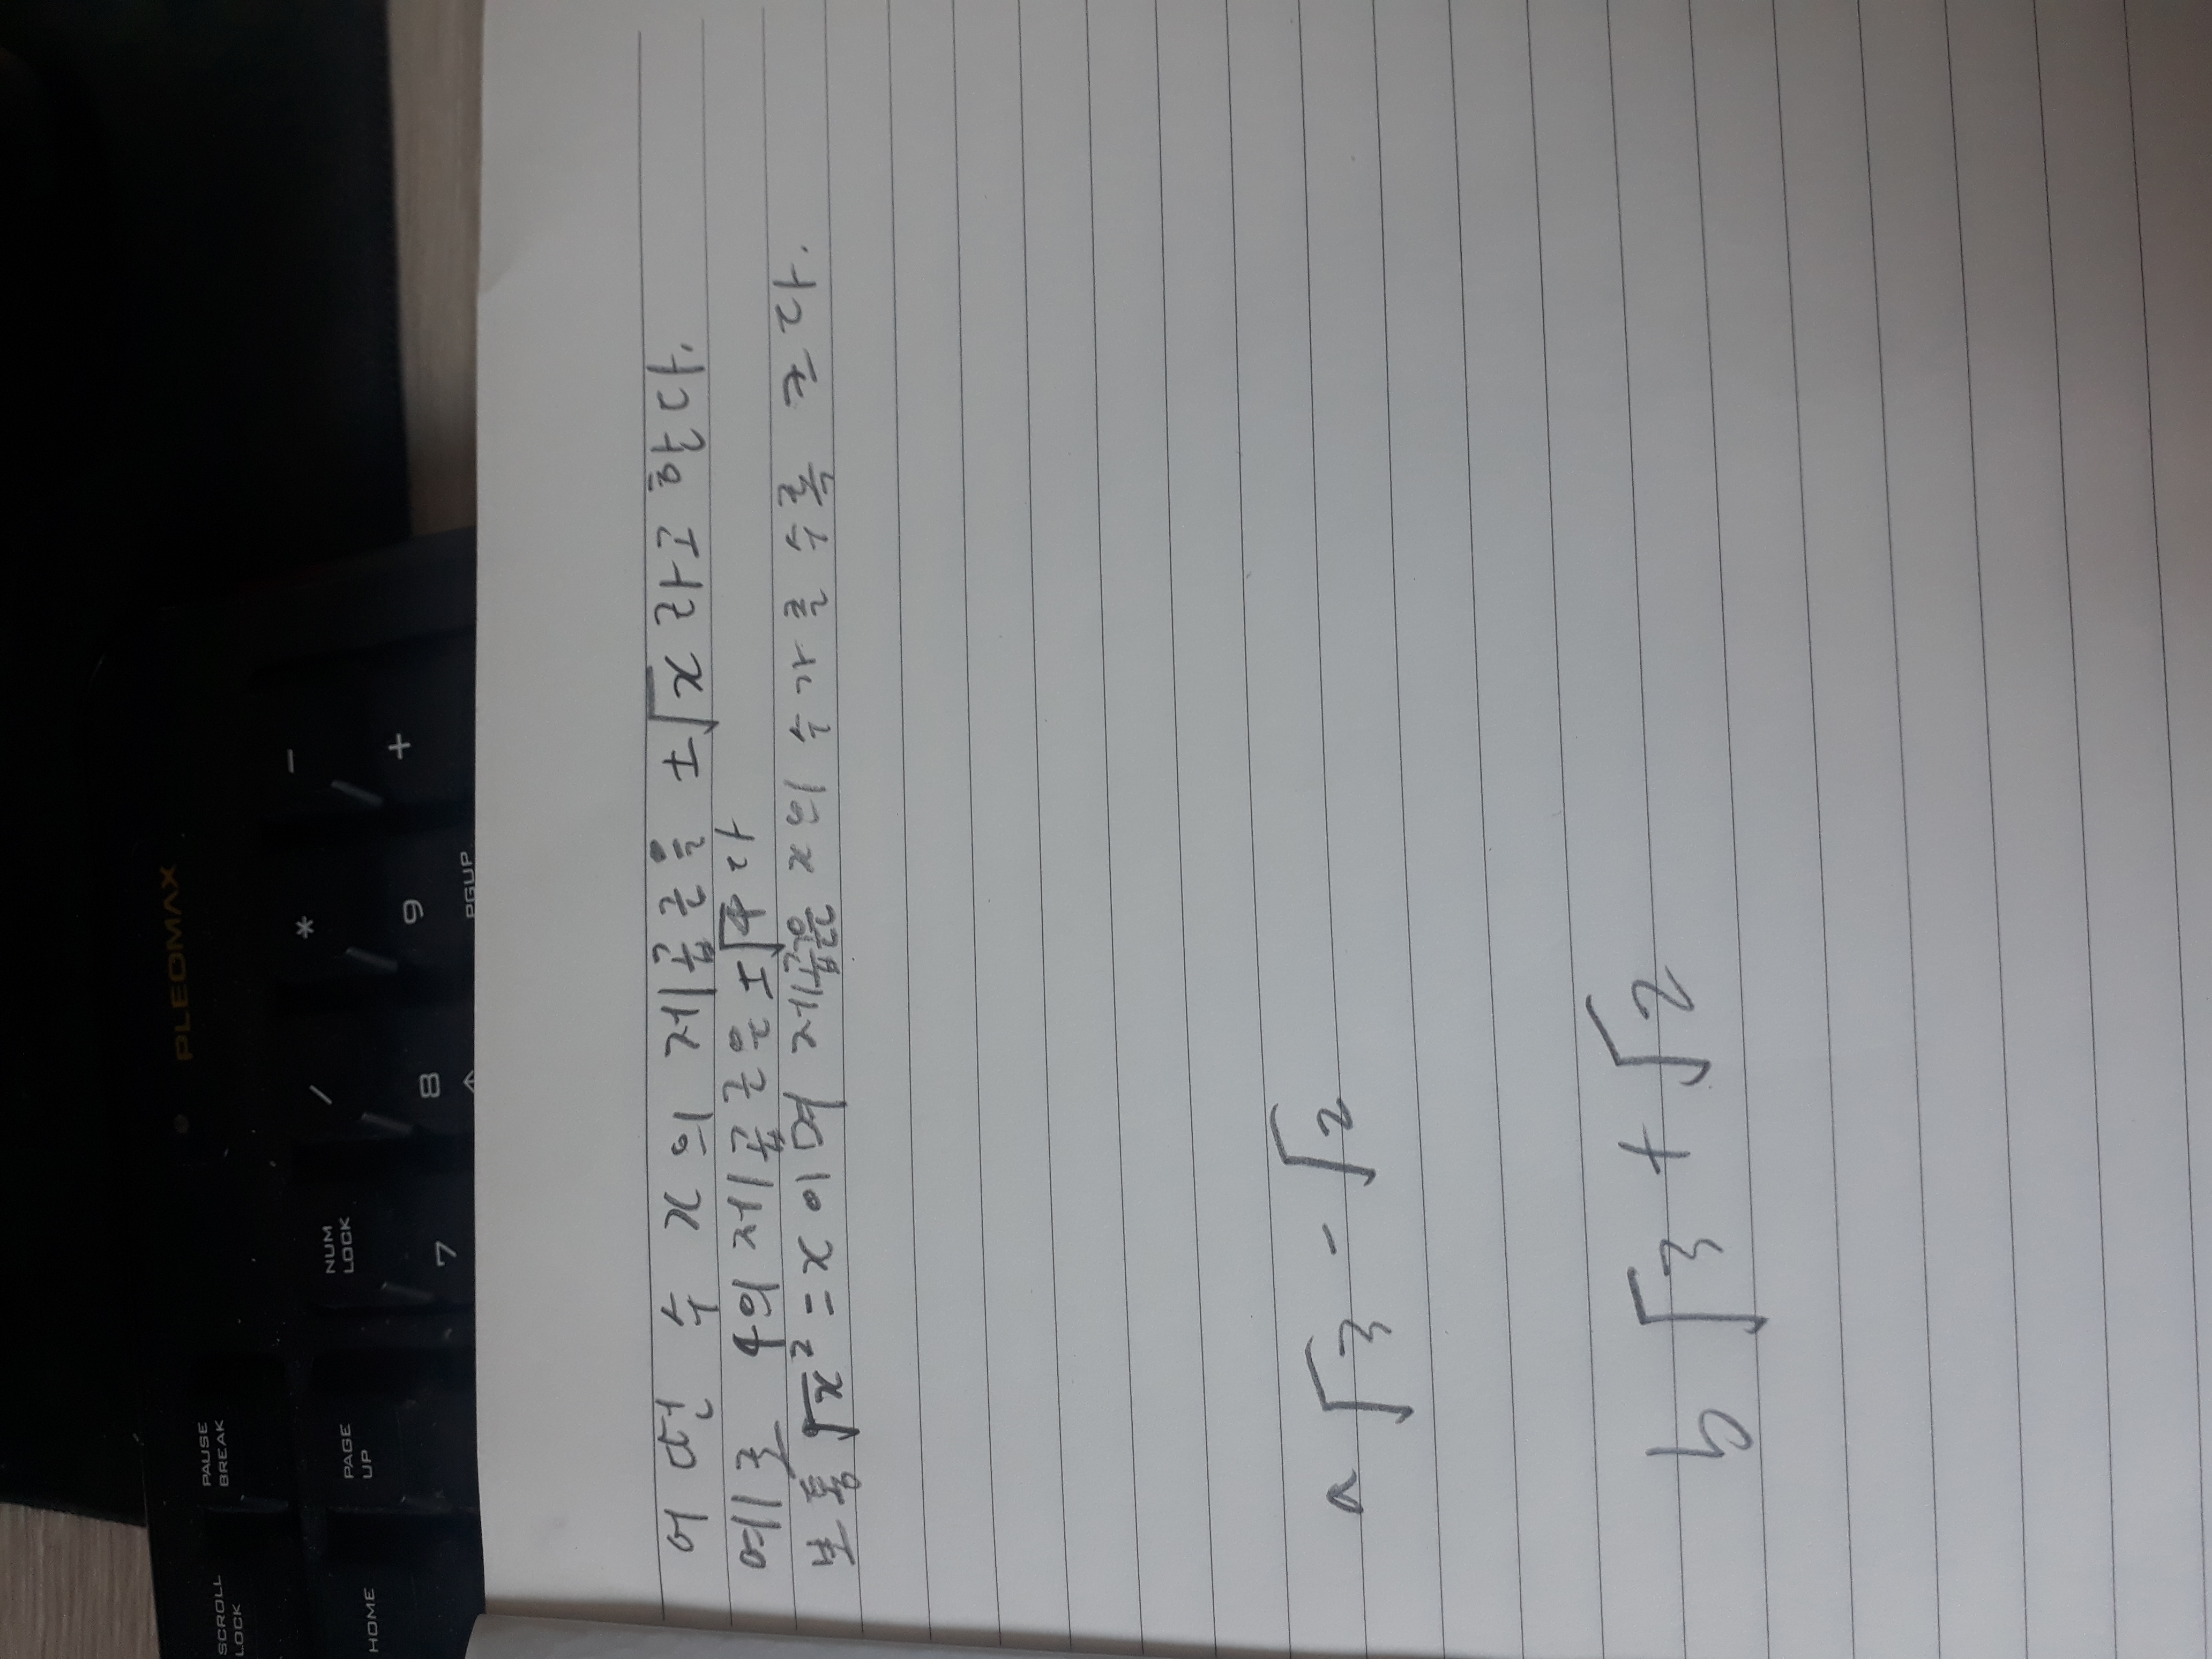 PLEOMAX
SCROLL LOCK
PAUSE BREAK
HOME
PAGE UP
NUM LOCK
/
*
-
7
8
9
+
PGUP
어떤 수 x의 제곱근을 ±√x 라고 한다.
예로 4의 제곱근은 ±√4 다
보통 √x² = x 이며 제곱은 x의 수가 클 수록 크다.
a √3 - √2
b √3 + √2